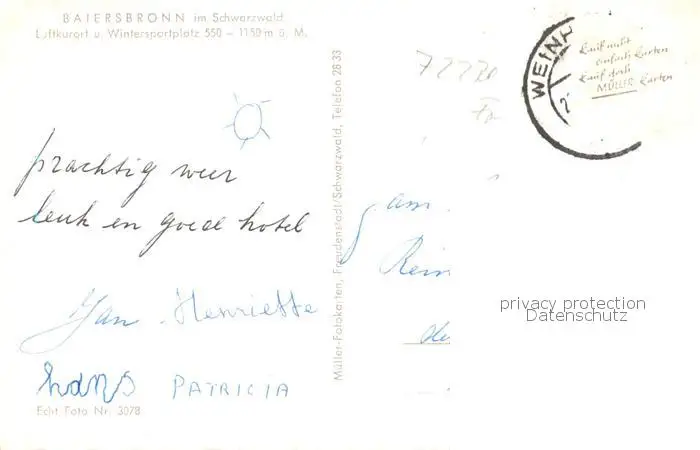 BAIERSBRONN im Schwarzwald
Luftkurort u. Wintersportplatz 550 – 1150 m ü. M.
prachtig weer
leuk en goed hotel
Jan Henriette
hans PATRICIA
Echt-Foto Nr. 3078
Müller-Fotokarten, Freudenstadt/Schwarzwald, Telefon 28 33
WEINH
Kauf nicht
einfach Karten
Kauf doch
MÜLLER Karten
fam.
Rein
privacy protection
Datenschutz